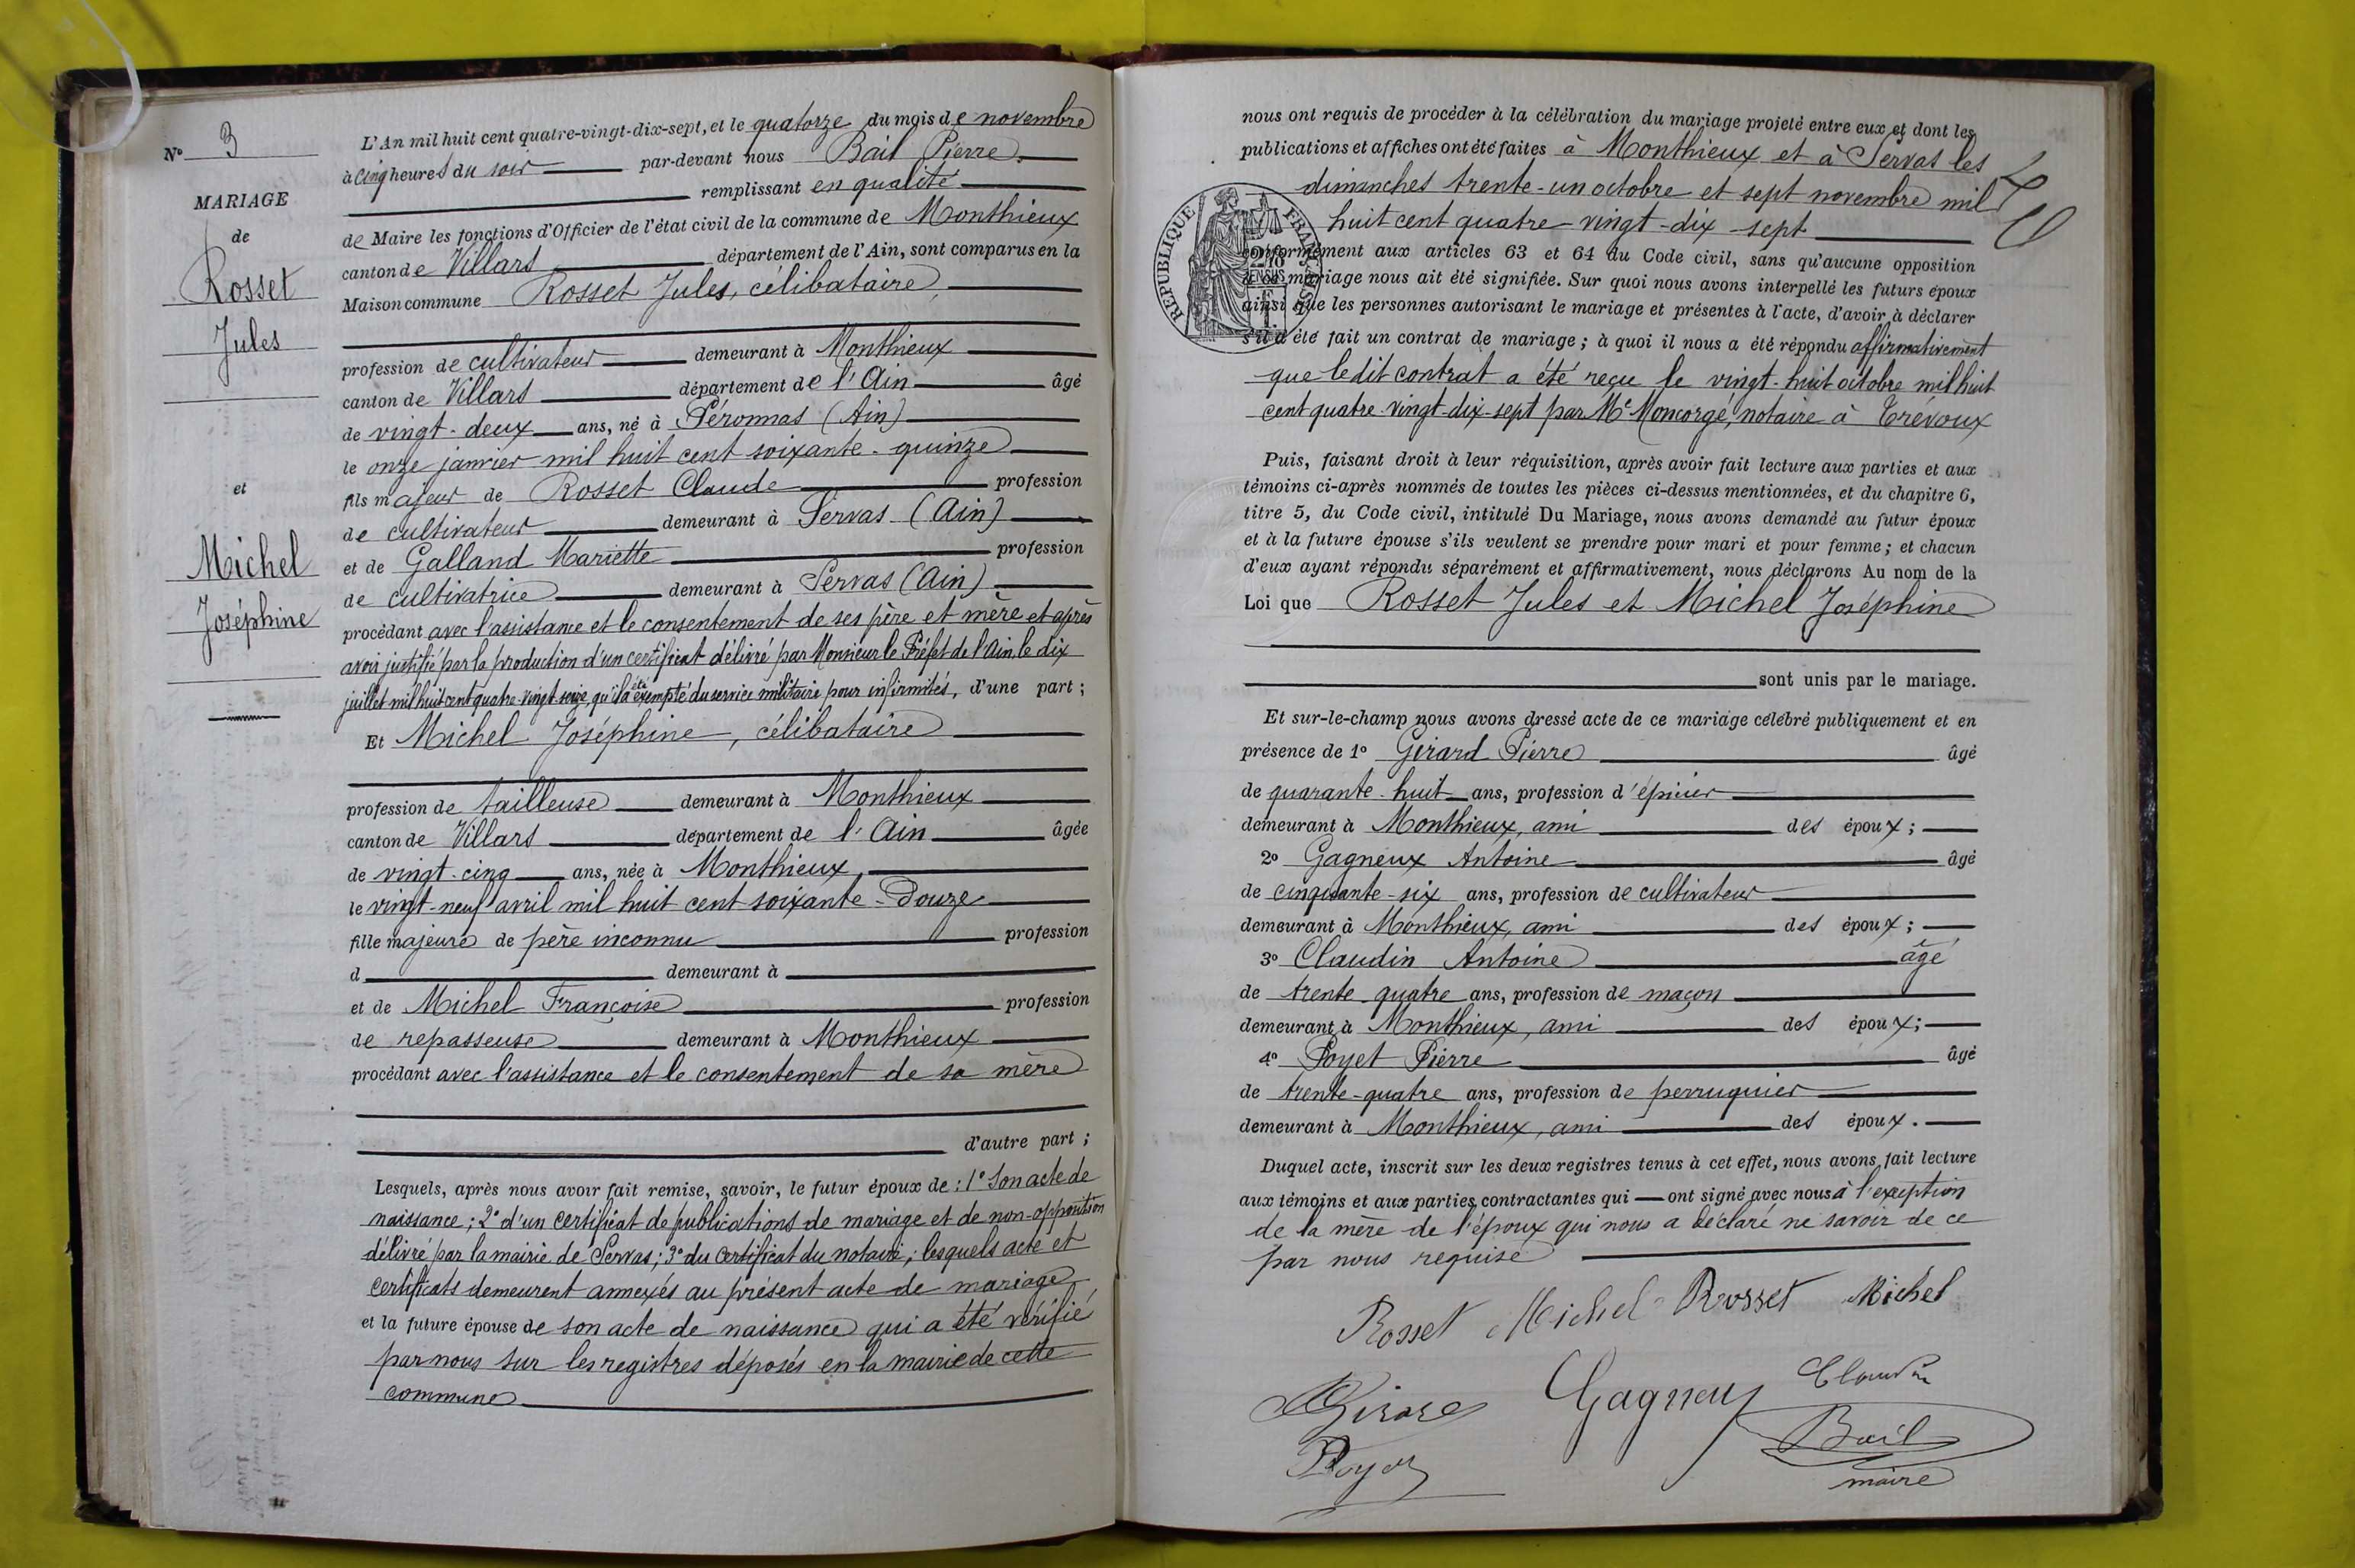 N° 3
MARIAGE
de
Rosset
Jules
et
Michel
Joséphine
L'An mil huit cent quatre-vingt-dix-sept, et le quatorze du mois de novembre
à cinq heures du soir par-devant nous Bail Pierre
remplissant en qualité
de Maire les fonctions d'Officier de l'état civil de la commune de Monthieux
canton de Villars département de l'Ain, sont comparus en la
Maison commune Rosset Jules, célibataire,
profession de cultivateur demeurant à Monthieux
canton de Villars département de l'Ain âgé
de vingt-deux ans, né à Péronnas (Ain)
le onze janvier mil huit cent soixante-quinze
fils majeur de Rosset Claude profession
de cultivateur demeurant à Servas (Ain)
et de Galland Mariette profession
de cultivatrice demeurant à Servas (Ain)
procédant avec l'assistance et le consentement de ses père et mère et après
avoir justifié par la production d'un certificat délivré par Monsieur le Préfet de l'Ain, le dix
juillet mil huit cent quatre-vingt-seize, qu'il a été exempté du service militaire pour infirmités, d'une part ;
Et Michel Joséphine, célibataire
profession de tailleuse demeurant à Monthieux
canton de Villars département de l'Ain âgée
de vingt-cinq ans, née à Monthieux,
le vingt-neuf avril mil huit cent soixante-Douze
fille majeure de père inconnu profession
d demeurant à
et de Michel Françoise profession
de repasseuse demeurant à Monthieux
procédant avec l'assistance et le consentement de sa mère
d'autre part ;
Lesquels, après nous avoir fait remise, savoir, le futur époux de : 1° Son acte de
naissance ; 2° d'un certificat de publications de mariage et de non-opposition
délivré par la mairie de Servas ; 3° du certificat du notaire ; lesquels acte et
certificats demeurent annexés au présent acte de mariage
et la future épouse de son acte de naissance qui a été vérifié
par nous sur les registres déposés en la mairie de cette
commune
nous ont requis de procéder à la célébration du mariage projeté entre eux et dont les
publications et affiches ont été faites à Monthieux et à Servas les
dimanches trente-un octobre et sept novembre mil
huit cent quatre-vingt-dix-sept
RÉPUBLIQUE FRANÇAISE
conformément aux articles 63 et 64 du Code civil, sans qu'aucune opposition
à ce mariage nous ait été signifiée. Sur quoi nous avons interpellé les futurs époux
ainsi que les personnes autorisant le mariage et présentes à l'acte, d'avoir à déclarer
s'il a été fait un contrat de mariage ; à quoi il nous a été répondu affirmativement
que ledit contrat a été reçu le vingt-huit octobre mil huit
cent quatre-vingt-dix-sept par Me Moncorgé, notaire à Trévoux
Puis, faisant droit à leur réquisition, après avoir fait lecture aux parties et aux
témoins ci-après nommés de toutes les pièces ci-dessus mentionnées, et du chapitre 6,
titre 5, du Code civil, intitulé Du Mariage, nous avons demandé au futur époux
et à la future épouse s'ils veulent se prendre pour mari et pour femme ; et chacun
d'eux ayant répondu séparément et affirmativement, nous déclarons Au nom de la
Loi que Rosset Jules et Michel Joséphine
sont unis par le mariage.
Et sur-le-champ nous avons dressé acte de ce mariage célébré publiquement et en
présence de 1° Girard Pierre âgé
de quarante-huit ans, profession d'épicier
demeurant à Monthieux, ami des époux ;
2° Gagneux Antoine âgé
de cinquante-six ans, profession de cultivateur
demeurant à Monthieux, ami des époux ;
3° Claudin Antoine âgé
de trente-quatre ans, profession de maçon
demeurant à Monthieux, ami des époux ;
4° Poyet Pierre âgé
de trente-quatre ans, profession de perruquier
demeurant à Monthieux, ami des époux.
Duquel acte, inscrit sur les deux registres tenus à cet effet, nous avons fait lecture
aux témoins et aux parties contractantes qui ont signé avec nous à l'exception
de la mère de l'époux qui nous a déclaré ne savoir de ce
par nous requise
Rosset Michel Rosset Michel
Girard Gagneux Claudin
Poyet Bail
maire